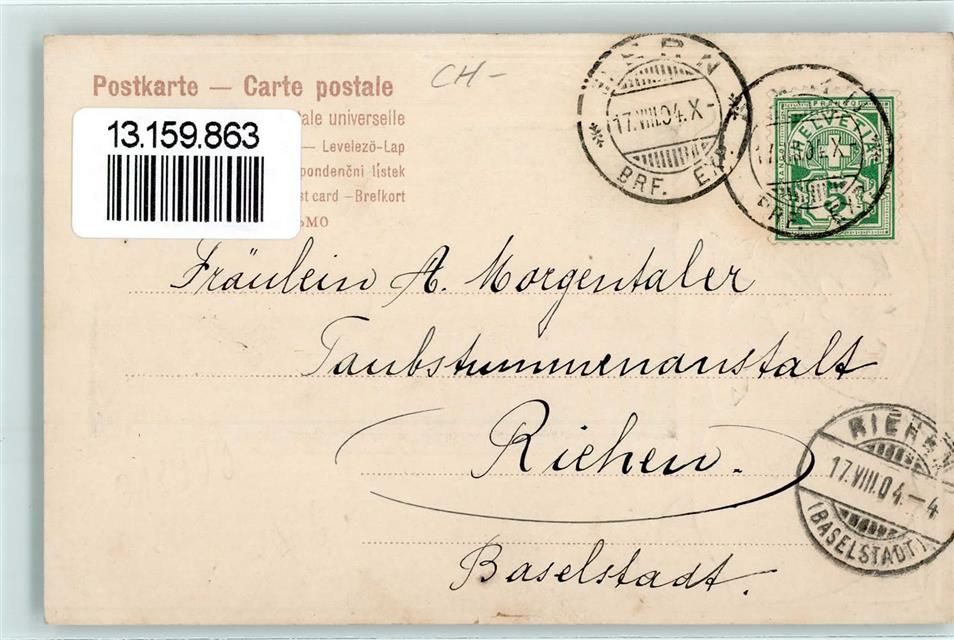 Postkarte — Carte postale
ale universelle
— Levelező-Lap
pondenční lístek
st card —Brefkort
ьмо
13.159.863
CH-
BERN
17.VIII.04.X-
BRF. EXP.
HELVETIA
5
17.VIII.04.X-
BRF. EXP.
Fräulein A. Morgentaler
Taubstummenanstalt
Riehen.
Baselstadt.
RIEHEN
17.VIII.04.-4
(BASELSTADT)